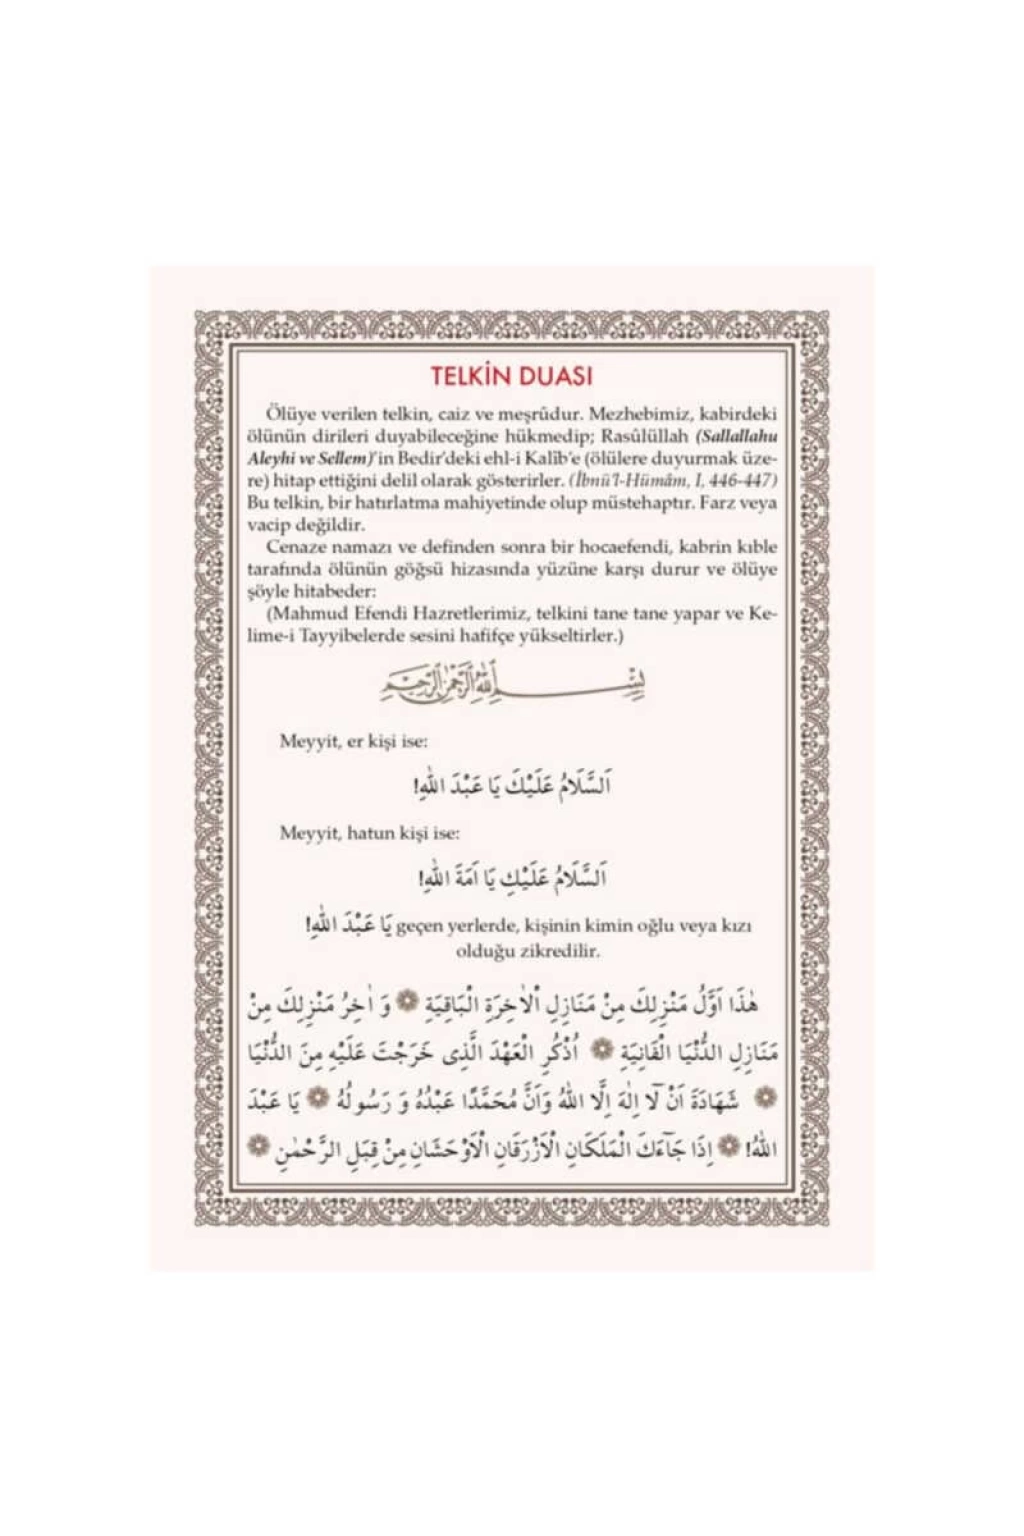 TELKİN DUASI
Ölüye verilen telkin, caiz ve meşrûdur. Mezhebimiz, kabirdeki
ölünün dirileri duyabileceğine hükmedip; Rasûlüllah (Sallallahu
Aleyhi ve Sellem)'in Bedir'deki ehl-i Kalîb'e (ölülere duyurmak üze-
re) hitap ettiğini delil olarak gösterirler. (İbnü'l-Hümâm, I, 446-447)
Bu telkin, bir hatırlatma mahiyetinde olup müstehaptır. Farz veya
vacip değildir.
Cenaze namazı ve definden sonra bir hocaefendi, kabrin kıble
tarafında ölünün göğsü hizasında yüzüne karşı durur ve ölüye
şöyle hitabeder:
(Mahmud Efendi Hazretlerimiz, telkini tane tane yapar ve Ke-
lime-i Tayyibelerde sesini hafifçe yükseltirler.)
بِسْمِ اللهِ الرَّحْمٰنِ الرَّحِيمِ
Meyyit, er kişi ise:
اَلسَّلَامُ عَلَيْكَ يَا عَبْدَ اللهِ!
Meyyit, hatun kişi ise:
اَلسَّلَامُ عَلَيْكِ يَا اَمَةَ اللهِ!
يَا عَبْدَ اللهِ! geçen yerlerde, kişinin kimin oğlu veya kızı
olduğu zikredilir.
هٰذَا اَوَّلُ مَنْزِلِكَ مِنْ مَنَازِلِ اْلاٰخِرَةِ الْبَاقِيَةِ ❁ وَ اٰخِرُ مَنْزِلِكَ مِنْ
مَنَازِلِ الدُّنْيَا الْفَانِيَةِ ❁ اُذْكُرِ الْعَهْدَ الَّذِى خَرَجْتَ عَلَيْهِ مِنَ الدُّنْيَا
❁ شَهَادَةَ اَنْ لَآ اِلٰهَ اِلَّا اللهُ وَاَنَّ مُحَمَّدًا عَبْدُهُ وَ رَسُولُهُ ❁ يَا عَبْدَ
اللهِ! ❁ اِذَا جَآءَكَ الْمَلَكَانِ الْاَزْرَقَانِ الْاَوْحَشَانِ مِنْ قِبَلِ الرَّحْمٰنِ ❁